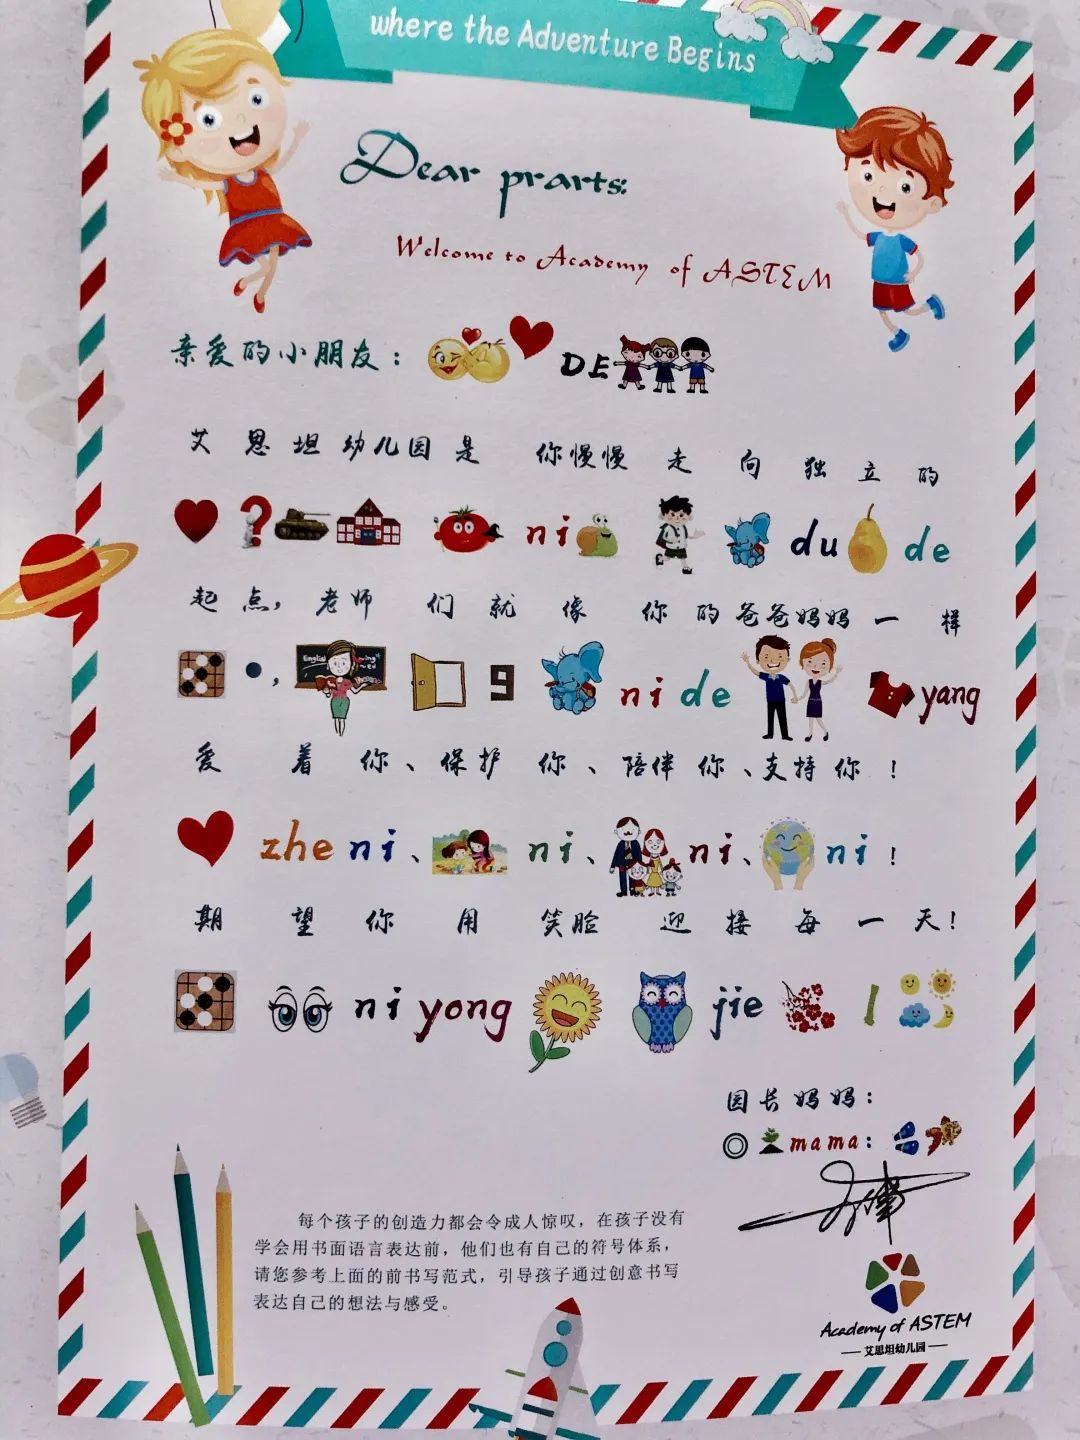 where the Adventure Begins
Dear prarts:
Welcome to Academy of ASTEM
亲爱的小朋友：
DE
艾思坦幼儿园是 你慢慢 走 向 独 立 的
? ni du de
起点，老师 们 就 像 你 的爸爸妈妈一 样
English
, 9 ni de yang
爱 着 你、保护 你、陪伴 你、支持 你！
zhe ni、 ni、 ni、 ni！
期 望 你 用 笑脸 迎 接 每 一 天！
ni yong jie 1
园长妈妈：
mama:
每个孩子的创造力都会令成人惊叹，在孩子没有
学会用书面语言表达前，他们也有自己的符号体系，
请您参考上面的前书写范式，引导孩子通过创意书写
表达自己的想法与感受。
Academy of ASTEM
艾思坦幼儿园